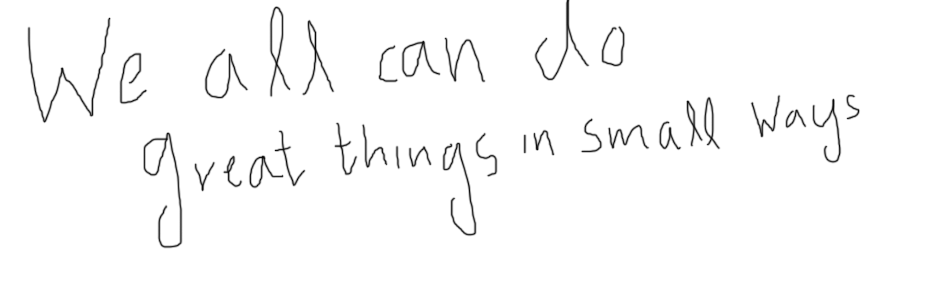 We all can do
great things in small ways